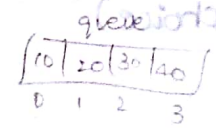 queue
10 20 30 40
0 1 2 3